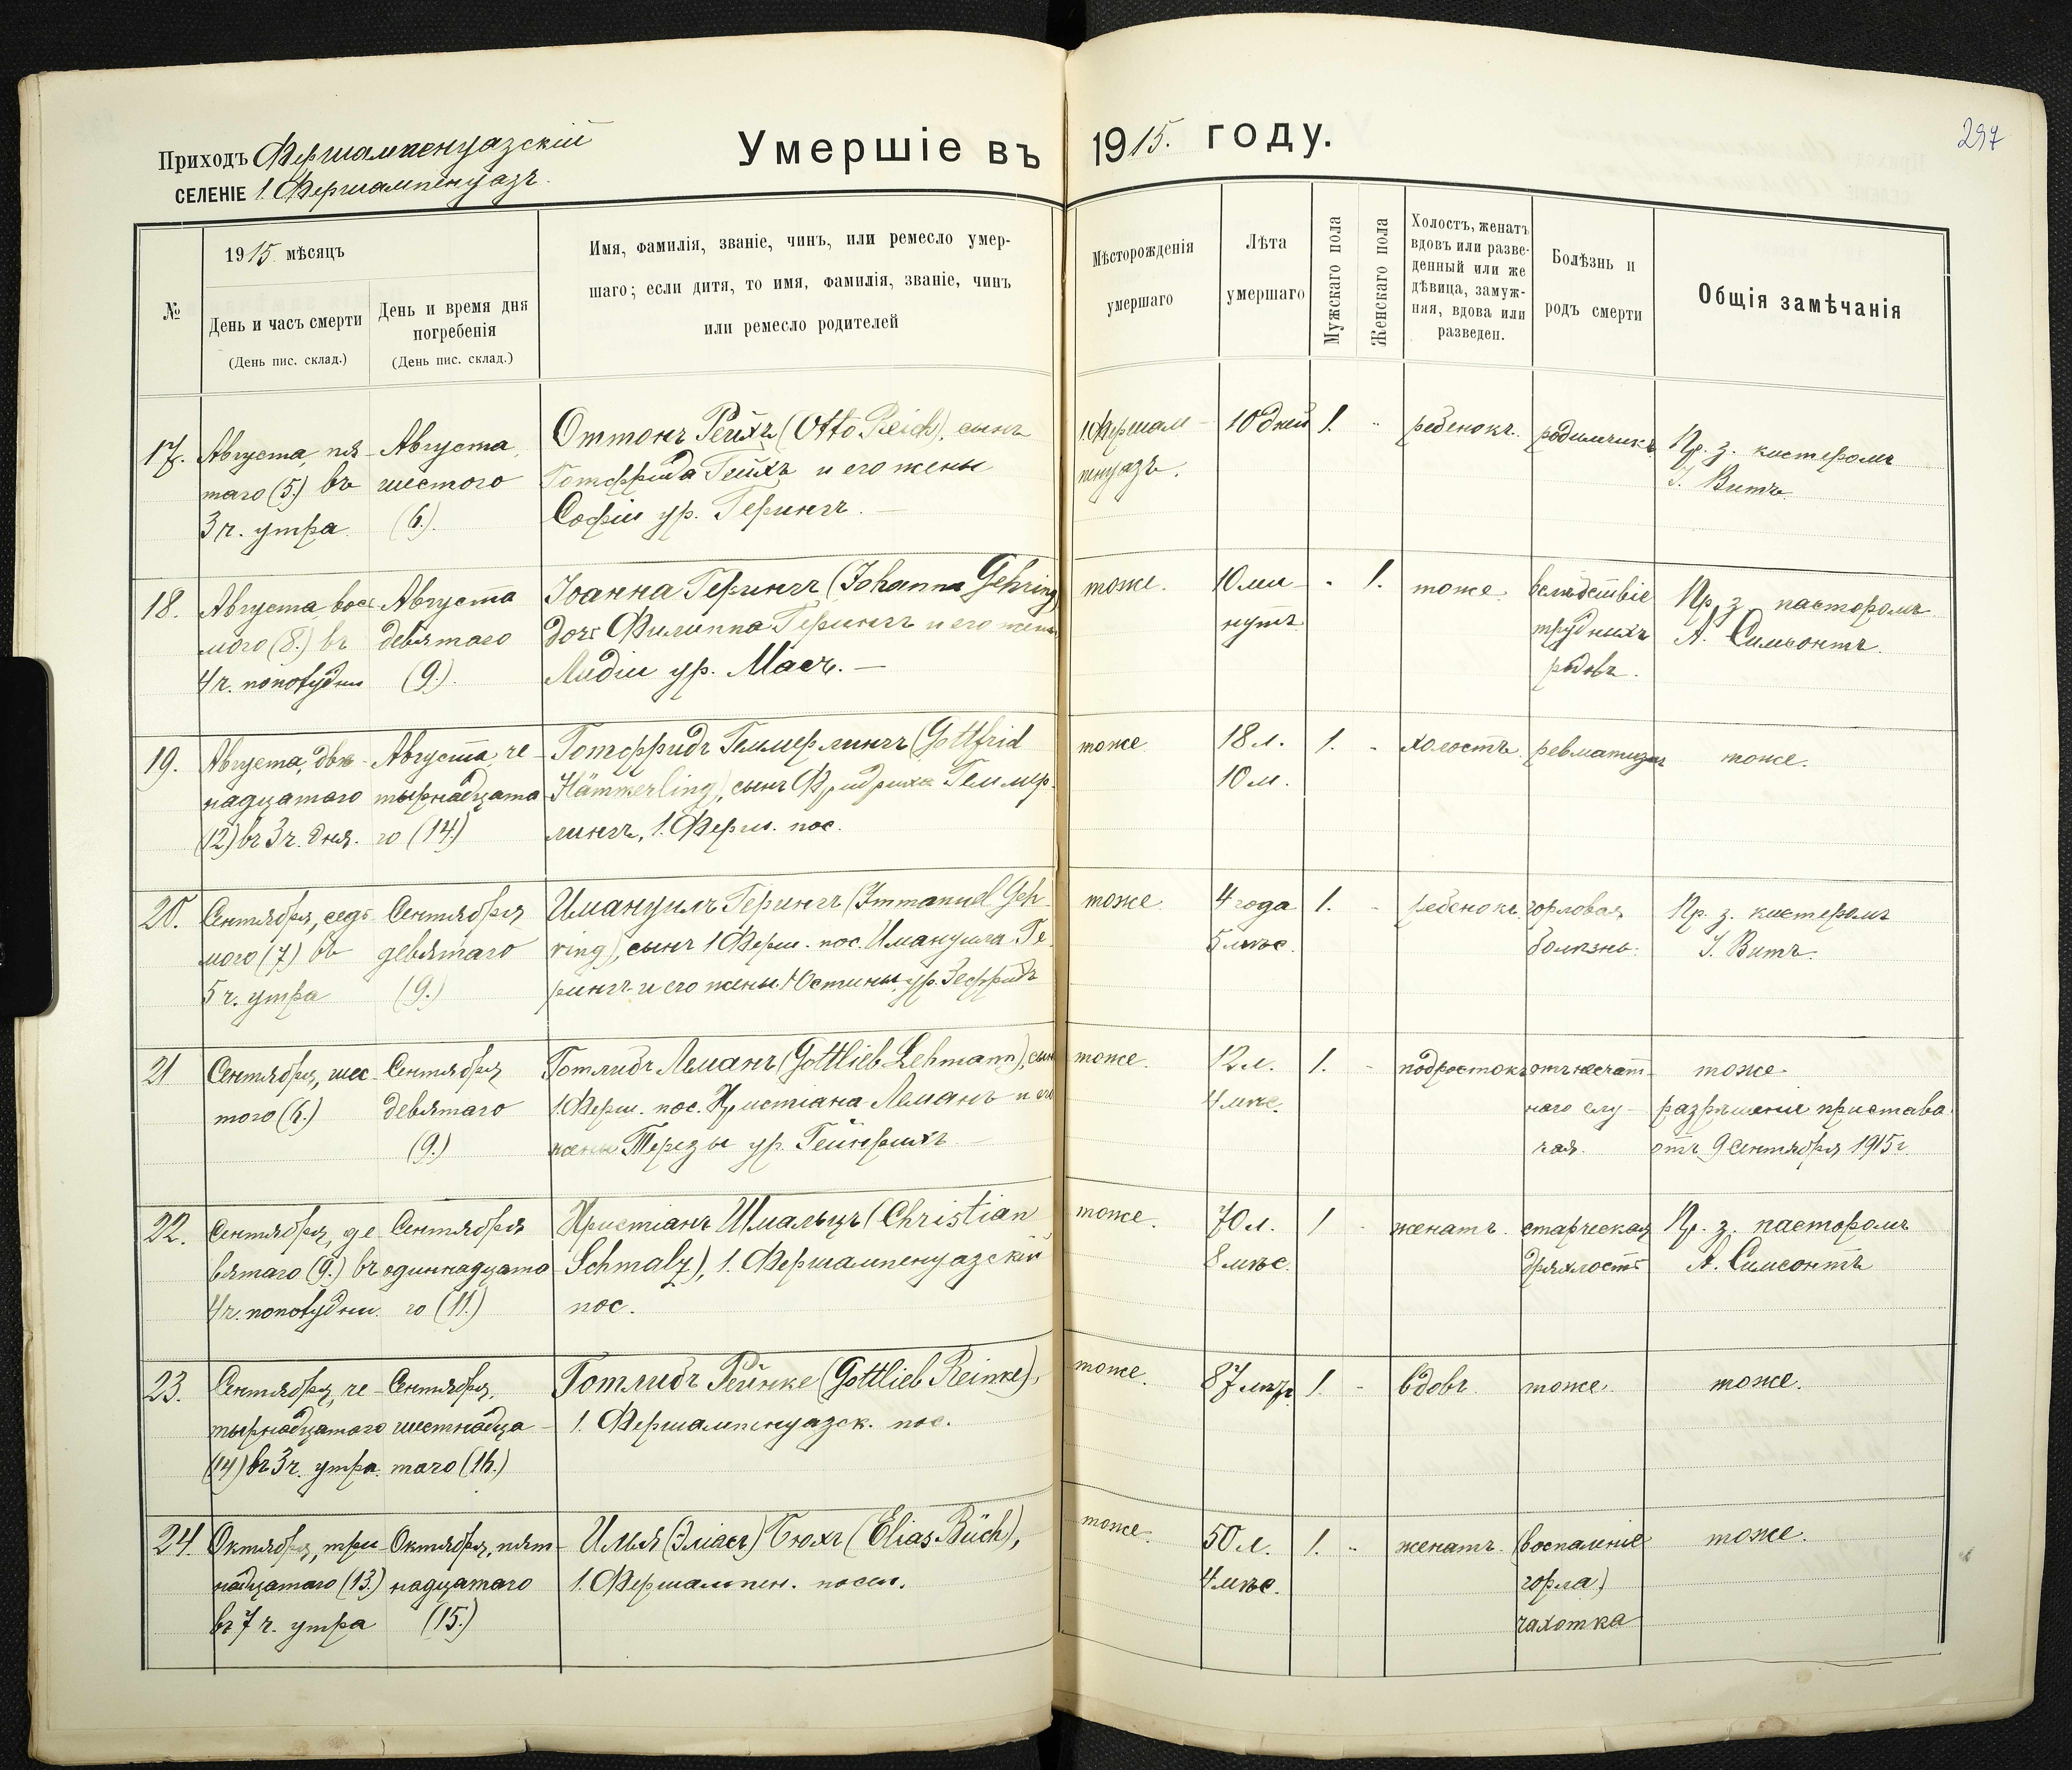 Приходъ Фершампенуазскій
СЕЛЕНІЕ 1. Фершампенуазъ.
Умершіе въ 1915. году.
297
№
1915 мѣсяцъ
День и часъ смерти
(День пис. склад.)
День и время дня
погребенія
(День пис. склад.)
Имя, фамилія, званіе, чинъ, или ремесло умер-
шаго; если дитя, то имя, фамилія, званіе, чинъ
или ремесло родителей
Мѣсторожденія
умершаго
Лѣта
умершаго
Мужскаго пола
Женскаго пола
Холостъ, женатъ
вдовъ или разве-
денный или же
дѣвица, замуж-
няя, вдова или
разведен.
Болѣзнь и
родъ смерти
Общія замѣчанія
17.
Августа, пя-
таго (5.) въ
3 ч. утра
Августа,
шестого
(6.)
Оттонъ Рейхъ (Otto Reich), сынъ
Готфрида Рейхъ и его жены
Софіи ур. Герингъ. —
1. Фершам-
пенуазъ.
10 дней
1.
-
ребенокъ.
родимчикъ
Пр. з. кистеромъ
І. Витъ.
18.
Августа, вос-
мого (8.) въ
4 ч. пополудни
Августа
девятаго
(9.)
Іоанна Герингъ (Johanna Gehring)
дочь Филиппа Герингъ и его жены
Лидіи ур. Маеръ. —
тоже.
10 ми-
нутъ
-
1.
тоже.
вслѣдствіе
трудныхъ
родовъ.
Пр. з. пасторомъ
А. Симсонтъ.
19.
Августа, двѣ-
надцатаго
(12) въ 3 ч. дня.
Августа, че-
тырнадцата
го (14.)
Готфридъ Геммерлингъ (Gottfrid
Hämmerling), сынъ Фридриха Геммер-
лингъ, 1. Ферш. пос.
тоже
18 л.
10 м.
1.
-
холостъ.
ревматизмъ
тоже.
20.
Сентября, седь-
мого (7) въ
5 ч. утра
Сентября
девятаго
(9.)
Имануилъ Герингъ (Immanuel Geh-
ring), сынъ 1 Ферш. пос. Имануила Ге-
рингъ и его жены Юстины ур. Зефридъ
тоже.
4 года
5 мѣс.
1.
-
ребенокъ.
горловая
болѣзнь.
Пр. з. кистеромъ
І. Витъ.
21
Сентября, шес-
того (6.)
Сентября
девятаго
(9.)
Готлибъ Леманъ (Gottlieb Lehmann), сынъ
1. Ферш. пос. Христіана Леманъ и его
жены Терезы ур. Гейнрихъ —
тоже.
12 л.
4 мѣс.
1.
-
подростокъ
отъ несчаст-
наго слу-
чая.
тоже.
разрѣшеніе пристава
отъ 9 Сентября 1915 г.
22.
Сентября, де-
вятаго (9.) въ
4 ч. пополудни.
Сентября
одиннадцата
го (11.)
Христіанъ Шмальцъ (Christian
Schmalz), 1. Фершампенуазскій
пос.
тоже.
70 л.
8 мѣс.
1
-
женатъ.
старческая
дряхлость
Пр. з. пасторомъ
А. Симсонтъ
23.
Сентября, че-
тырнадцатаго
(14) въ 3 ч. утра.
Сентября,
шестнадца-
таго (16.)
Готлибъ Рейнке (Gottlieb Reinke),
1. Фершампенуазск. пос.
тоже.
87 лѣтъ
1.
-
вдовъ
тоже.
тоже.
24.
Октября, три-
надцатаго (13.)
въ 7 ч. утра
Октября, пят-
надцатаго
(15.)
Илья (Эліасъ) Бюхъ (Elias Büch),
1. Фершампен. посел.
тоже.
50 л.
4 мѣс.
1.
-
женатъ.
(воспаленіе
горла)
чахотка
тоже.